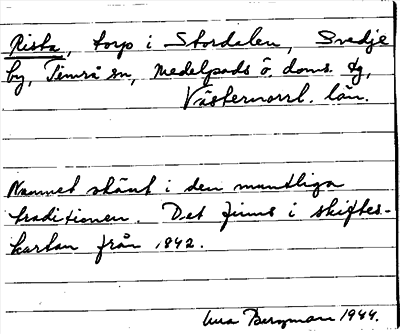 Rista, torp i Stordalen, Svedje
by, Timrå sn, Medelpads ö. doms. tg,
Västernorrl. län.
Namnet okänt i den muntliga
traditionen. Det finns i skiftes-
kartan från 1842.
Bergman 1944.